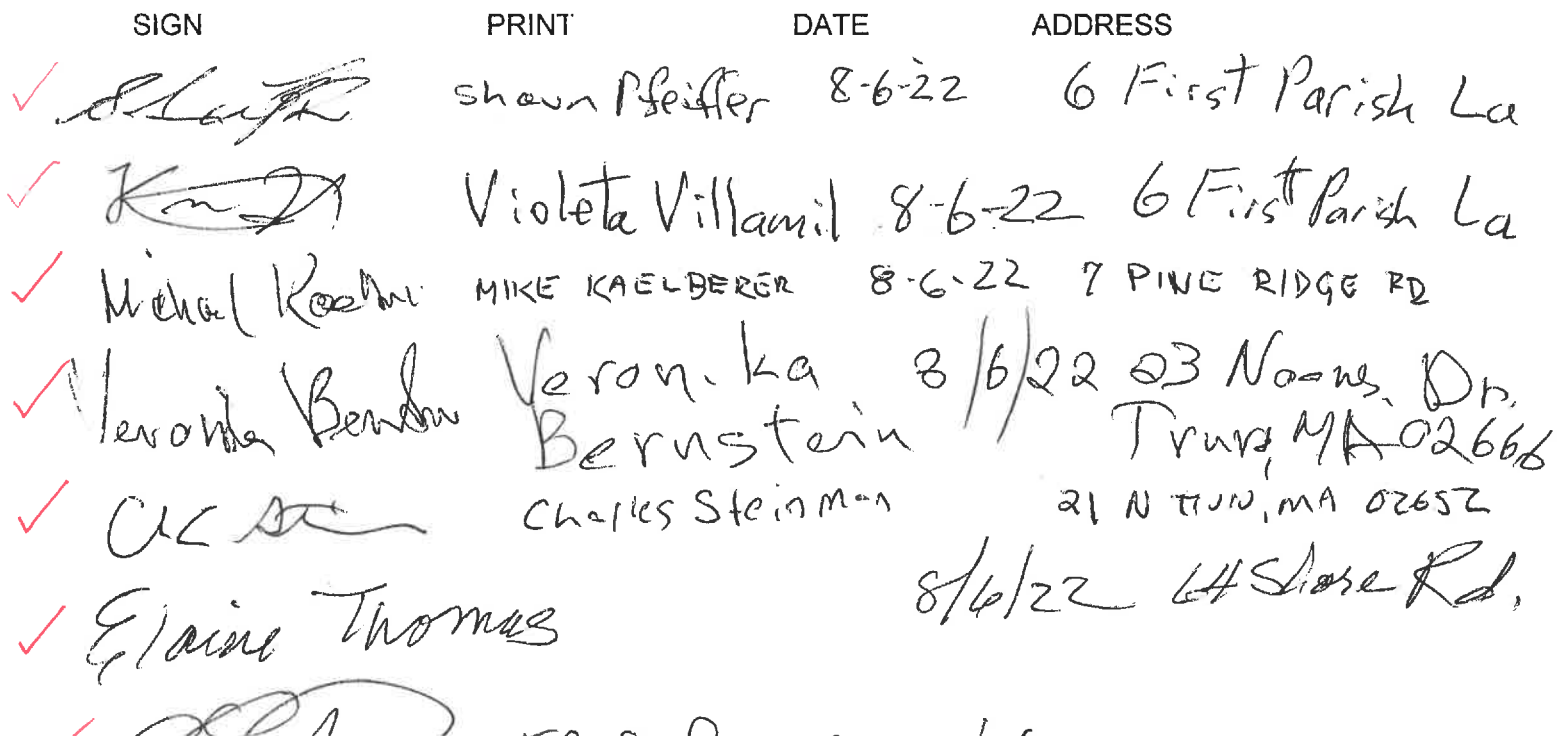 SIGN PRINT DATE ADDRESS
Shawn Pfeiffer 8-6-22 6 First Parish La
Violeta Villamil 8-6-22 6 First Parish La
Michael MIKE KAELBERER 8-6-22 7 PINE RIDGE RD
Veronika Veronika 8/6/22 23 Noons Dr.
Bernstein Truro, MA 02666
Charles Steinman 21 N MA 02652
Elaine Thomas 8/6/22 Shore Rd.